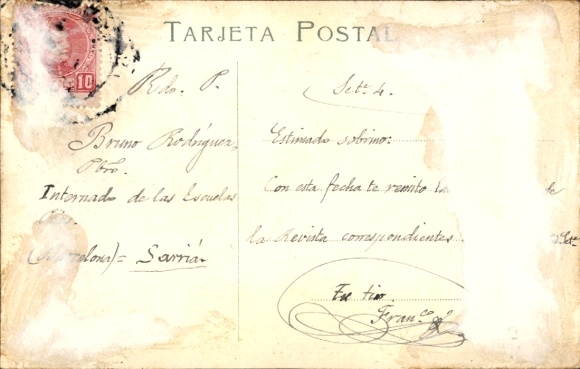 TARJETA POSTAL
10
Rdo. P.
Bruno Rodríguez,
Pbro.
Internado de las Escuelas
Sarriá.
Set.e 4.
Estimado sobrino:
Con esta fecha te remito
la Revista correspondientes
Tu tío.
Fran.co